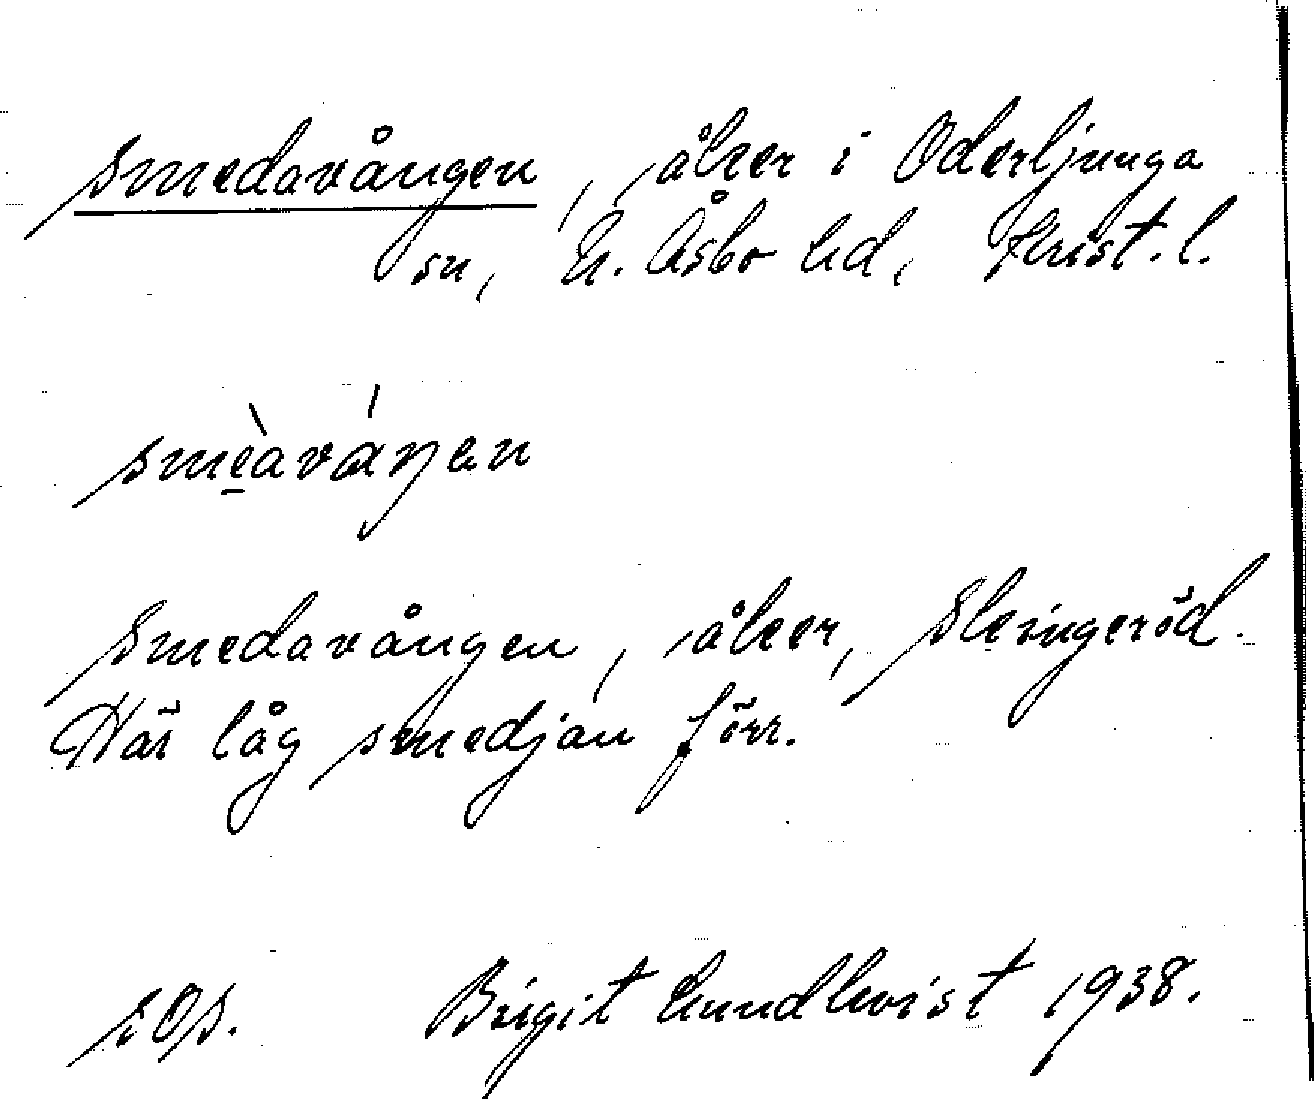 Smedavången, åker i Oderljunga
sn, N. Åsbo hd, Krist. l.
smèavángen
Smedavången, åker, Sleingeröd.
Här låg smedjan förr.
Birgit Lundkvist 1938.